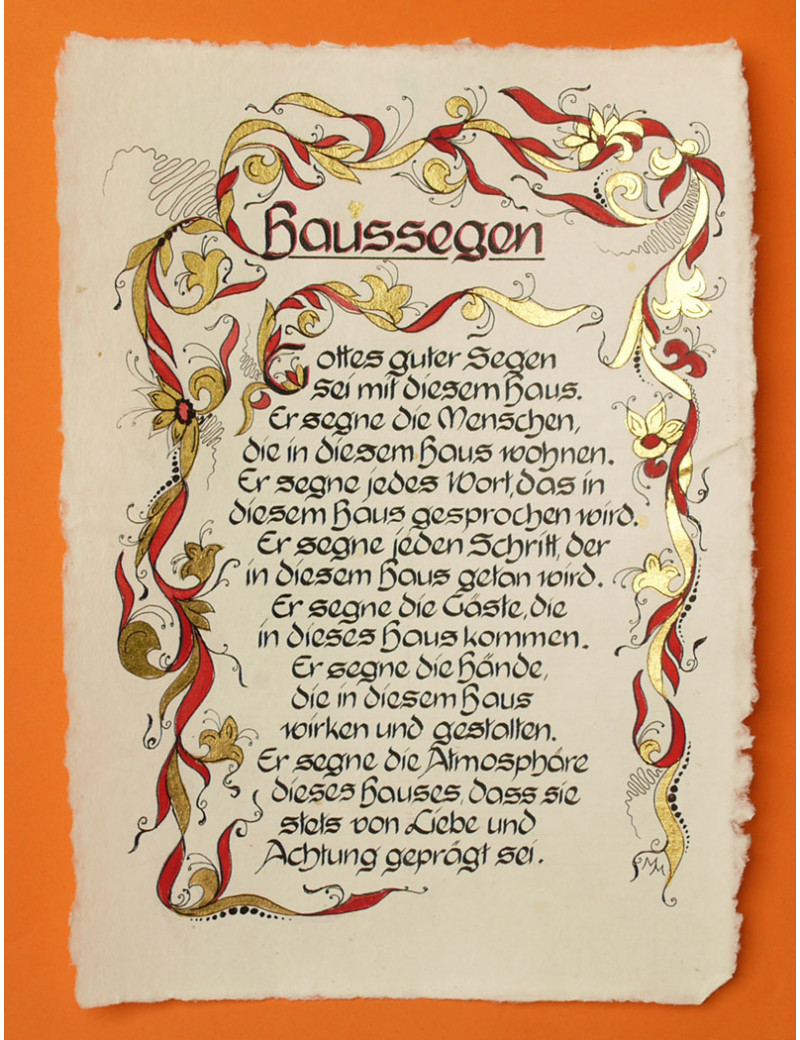 Haussegen
Gottes guter Segen
sei mit diesem Haus.
Er segne die Menschen,
die in diesem Haus wohnen.
Er segne jedes Wort, das in
diesem Haus gesprochen wird.
Er segne jeden Schritt, der
in diesem Haus getan wird.
Er segne die Gäste, die
in dieses Haus kommen.
Er segne die Hände,
die in diesem Haus
wirken und gestalten.
Er segne die Atmosphäre
dieses Hauses, dass sie
stets von Liebe und
Achtung geprägt sei.